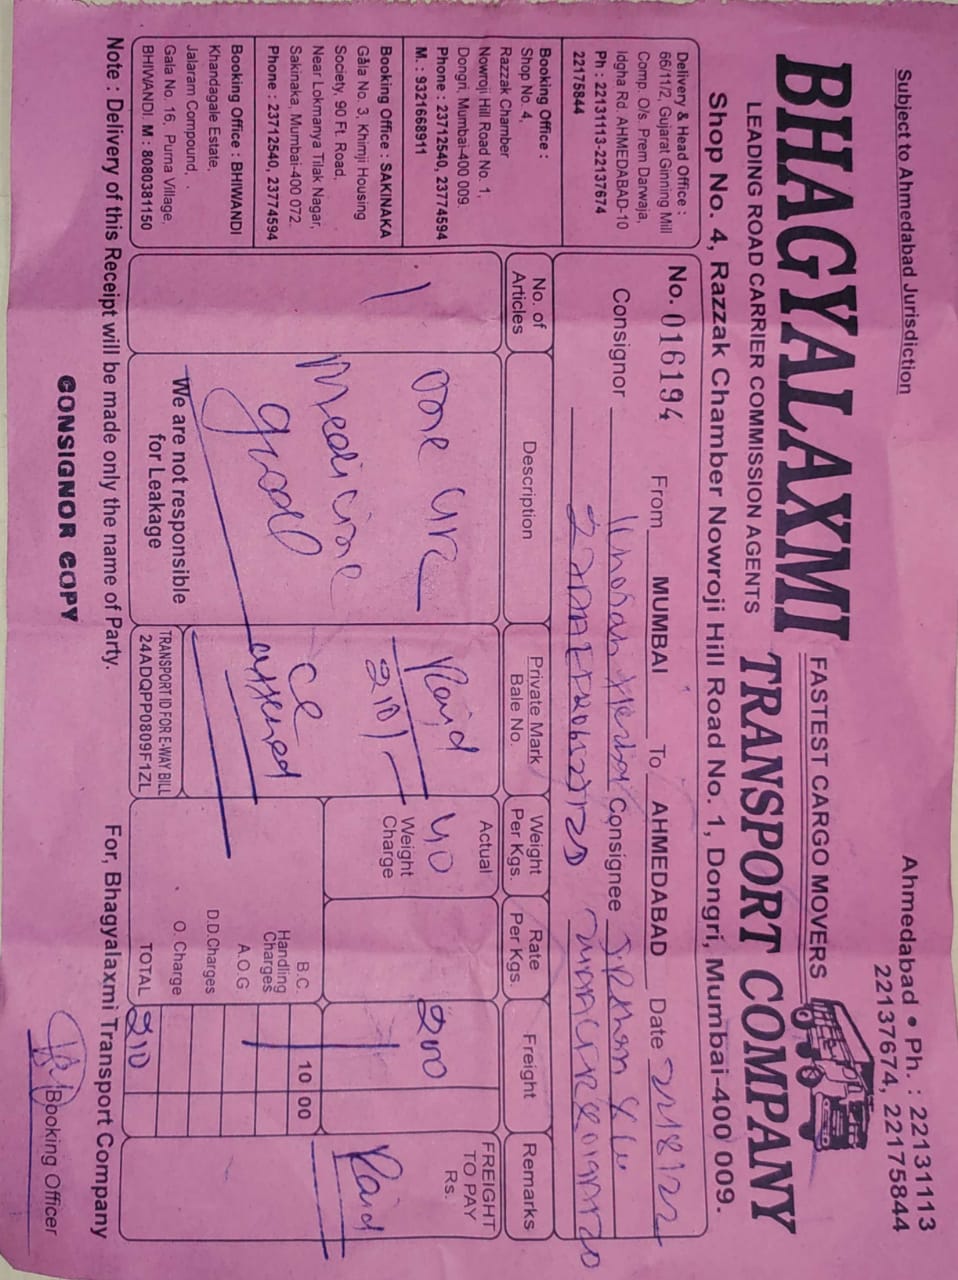 Subject to Ahmedabad Jurisdiction
Ahmedabad • Ph. : 22131113
22137674, 22175844
BHAGYALAXMI
FASTEST CARGO MOVERS
TRANSPORT COMPANY
LEADING ROAD CARRIER COMMISSION AGENTS
Shop No. 4, Razzak Chamber Nowroji Hill Road No. 1, Dongri, Mumbai-400 009.
Delivery & Head Office :
66/11/2, Gujarat Ginning Mill
Comp. O/s. Prem Darwaja,
Idgha Rd. AHMEDABAD-10
Ph : 22131113-22137674
22175844
Booking Office :
Shop No. 4,
Razzak Chamber
Nowroji Hill Road No. 1,
Dongri, Mumbai-400 009.
Phone : 23712540, 23774594
M. : 9321668911
Booking Office : SAKINAKA
Gala No. 3, Khimji Housing
Society, 90 Ft. Road,
Near Lokmanya Tilak Nagar,
Sakinaka, Mumbai-400 072.
Phone : 23712540, 23774594
Booking Office : BHIWANDI
Khandagale Estate,
Jalaram Compound, .
Gala No. 16, Purna Village,
BHIWANDI. M : 8080381150
No. 016194 From MUMBAI To AHMEDABAD Date 22/8/22
Consignor Consignee
No. of Articles
Description
Private Mark
Bale No.
Weight
Per Kgs.
Rate
Per Kgs.
Freight
Remarks
1
one
Medicine
good
We are not responsible
for Leakage
Paid
210/-
TRANSPORT ID FOR E-WAY BILL
24ADQPP0809F1ZL
Actual
40
Weight
Charge
200
FREIGHT
TO PAY
Rs.
Paid
B.C. 10 00
Handling
Charges
A.O.G
D.D.Charges
O. Charge
TOTAL 210
Note : Delivery of this Receipt will be made only the name of Party.
For, Bhagyalaxmi Transport Company
CONSIGNOR COPY
Booking Officer